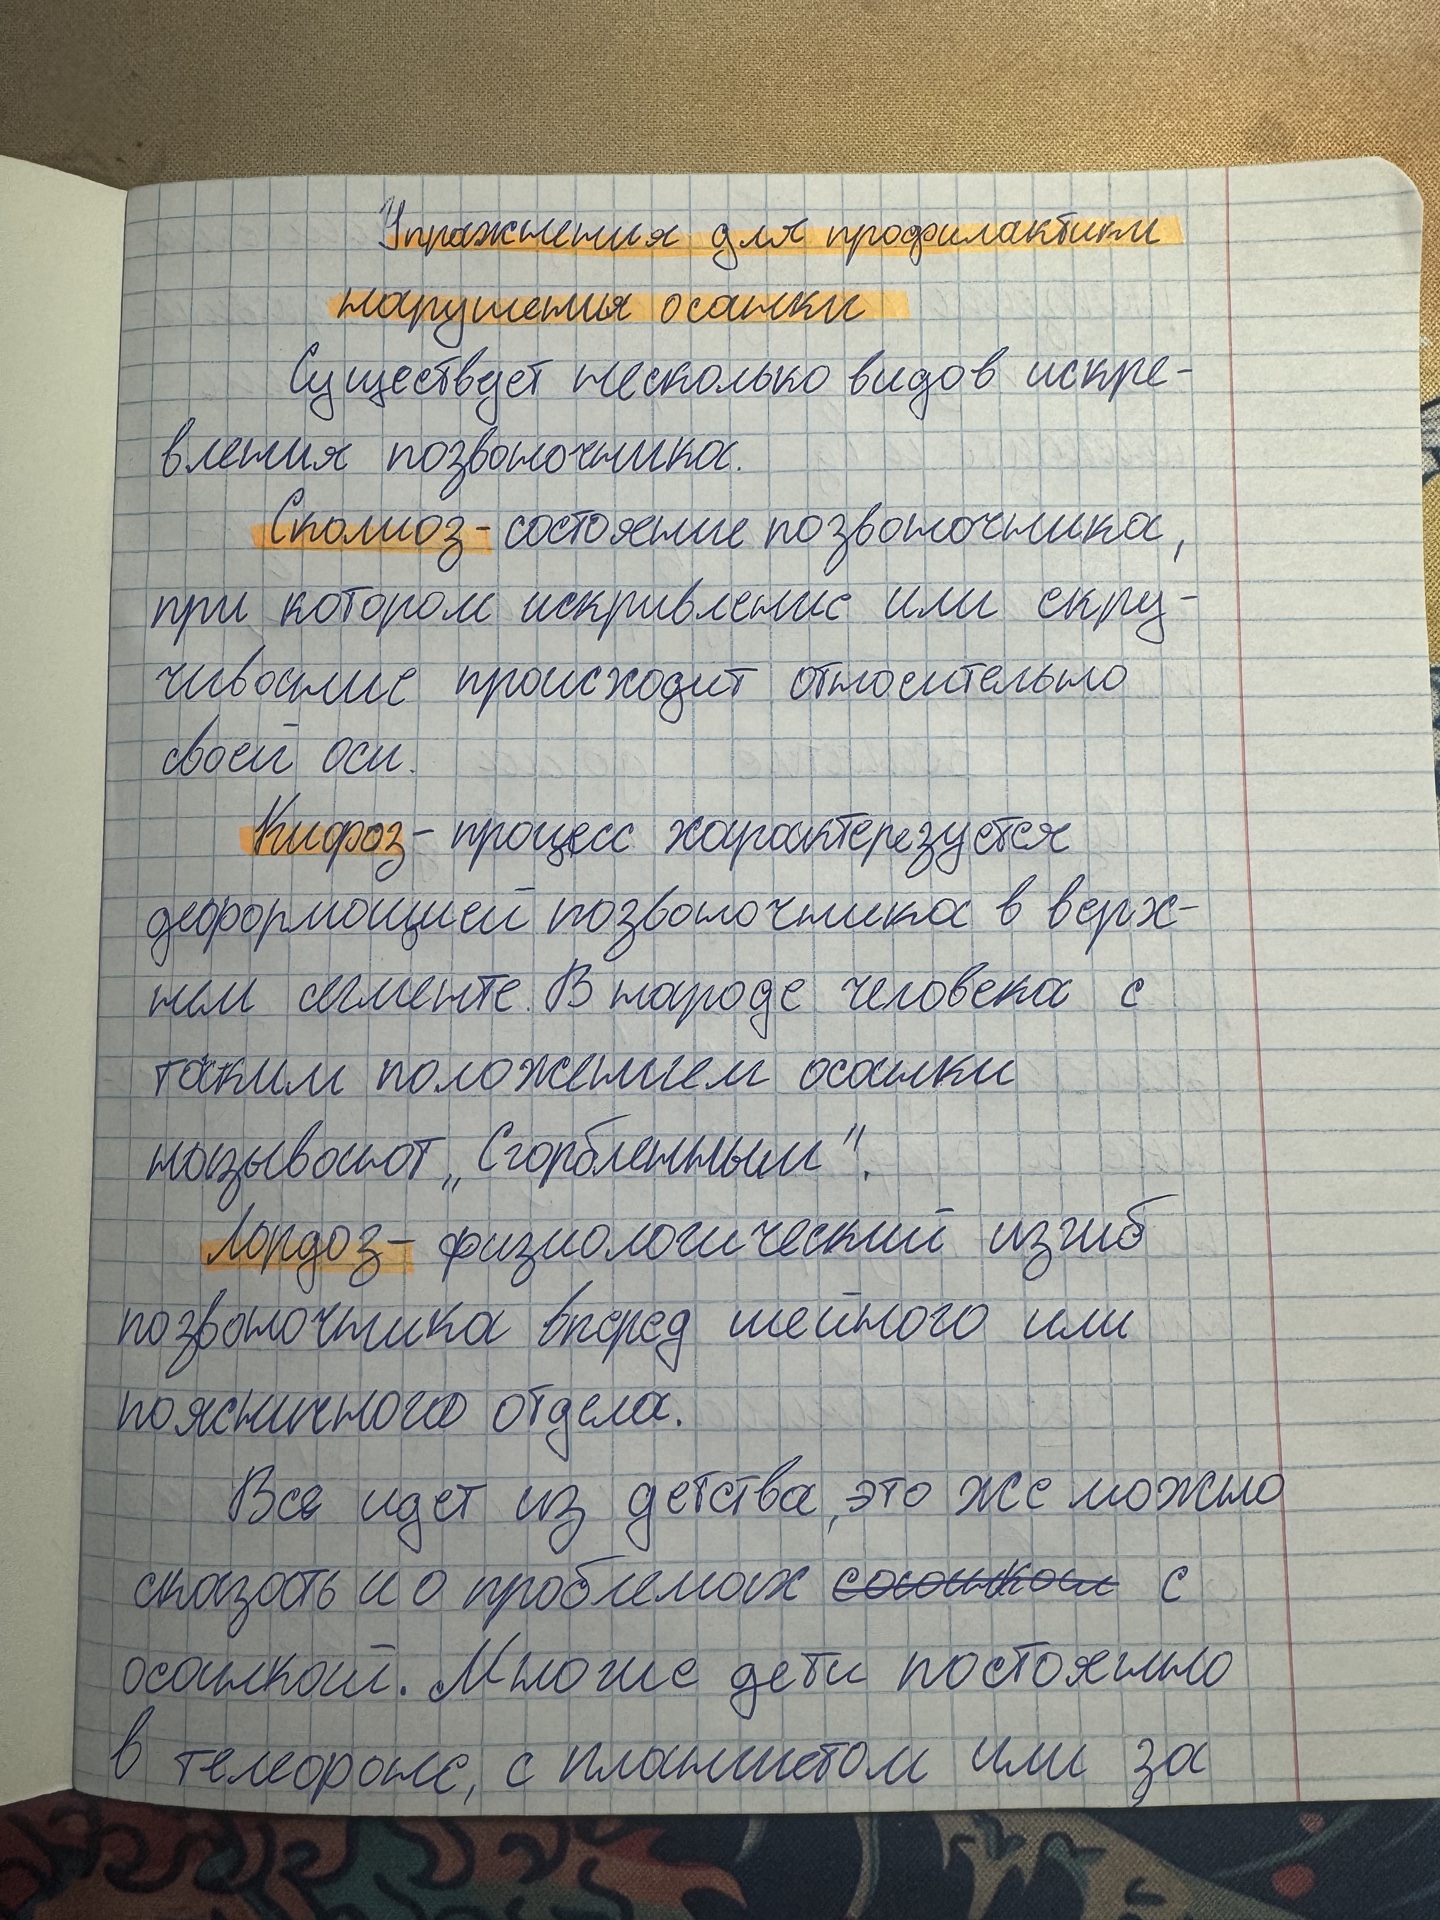 Упражнения для профилактики
нарушения осанки
Существует несколько видов искре-
вления позвоночника.
Сколиоз - состояние позвоночника,
при котором искривление или скру-
чивание происходит относительно
своей оси.
Кифоз - процесс характерезуется
деформацией позвоночника в верх-
нем сегменте. В народе человека с
таким положением осанки
называют „Сгорбленным".
Лордоз - физиологический изгиб
позвоночника вперед шейного или
поясничного отдела.
Все идет из детства, это же можно
сказать и о проблемах с
осанкой. Многие дети постоянно
в телефоне, с планшетом или за